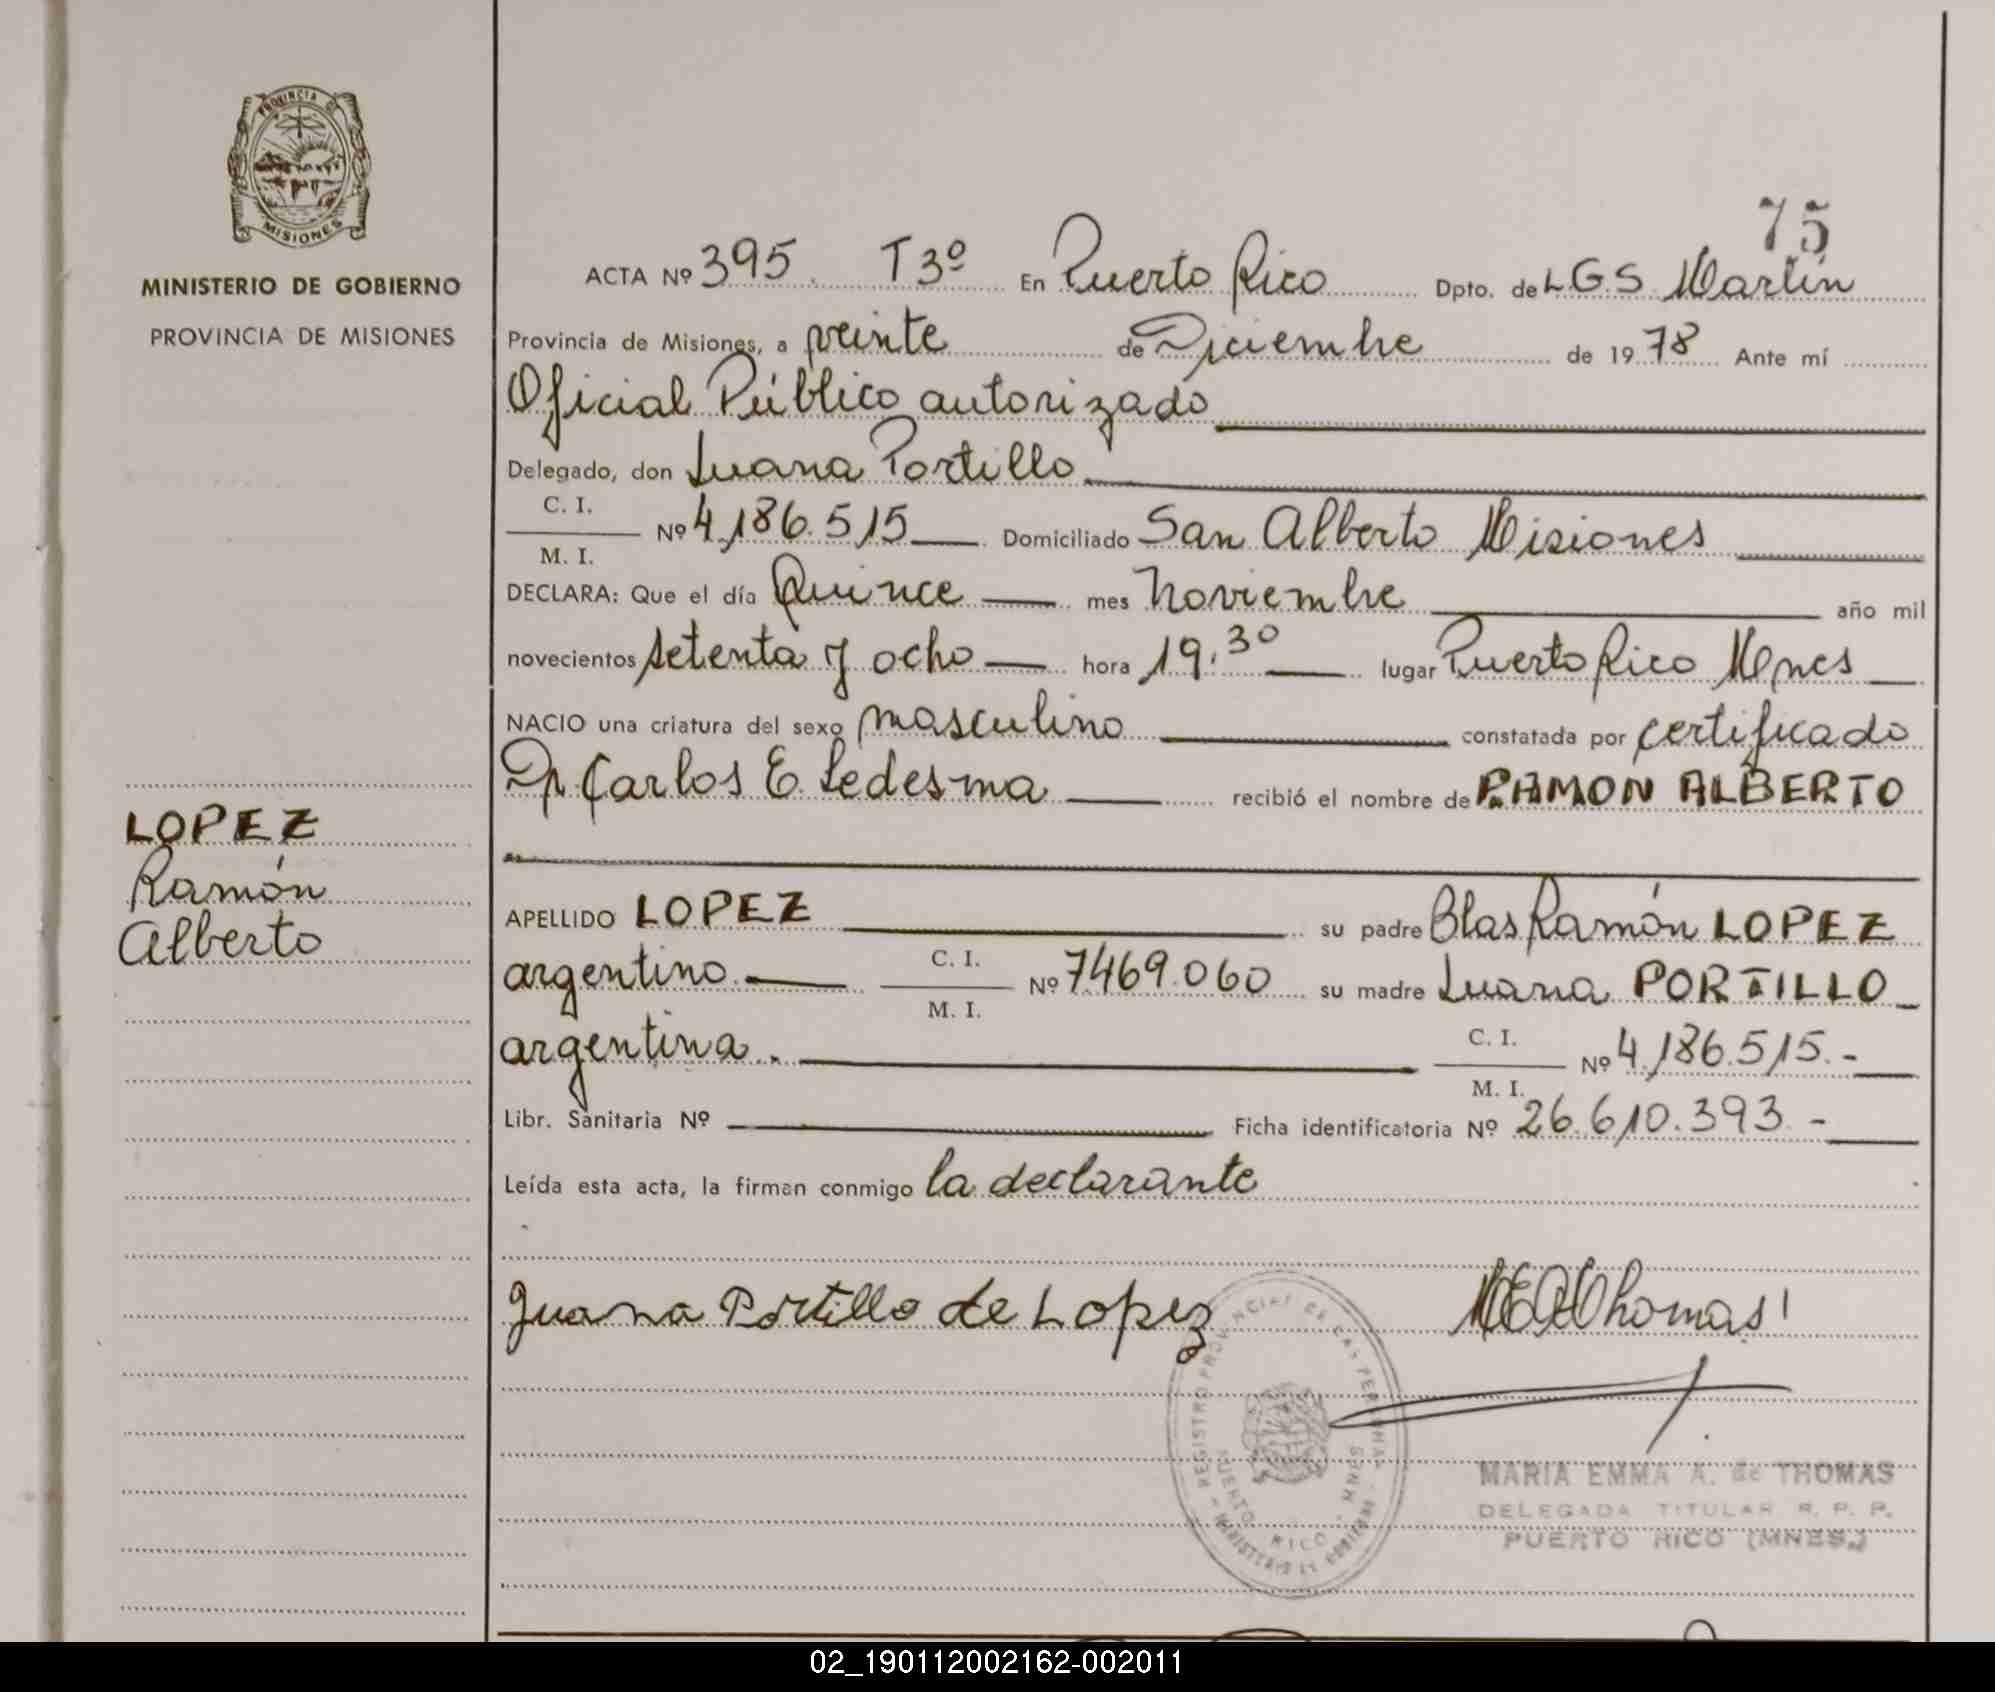 PROVINCIA DE
MISIONES
MINISTERIO DE GOBIERNO
PROVINCIA DE MISIONES
LOPEZ
Ramón
Alberto
75
ACTA Nº 395 T3º En Puerto Rico Dpto. de L.G.S. Martín
Provincia de Misiones, a veinte de Diciembre de 1978 Ante mí
Oficial Público autorizado
Delegado, don Juana Portillo
C. I.
M. I.
Nº 4.186.515 Domiciliado San Alberto Misiones
DECLARA: Que el día Quince mes Noviembre año mil
novecientos setenta y ocho hora 19.30 lugar Puerto Rico Mnes
NACIO una criatura del sexo masculino constatada por certificado
Dr. Carlos E. Ledesma recibió el nombre de RAMON ALBERTO
APELLIDO LOPEZ su padre Blas Ramón LOPEZ
argentino C. I.
M. I.
Nº 7469.060 su madre Juana PORTILLO
argentina. C. I.
M. I.
Nº 4.186.515.-
Libr. Sanitaria Nº Ficha identificatoria Nº 26.610.393.-
Leída esta acta, la firman conmigo la declarante
Juana Portillo de Lopez
MEAThomas
REGISTRO PROVINCIAL DE LAS PERSONAS
PUERTO RICO - MNES
MINISTERIO DE GOBIERNO
MARIA EMMA A. de THOMAS
DELEGADA TITULAR R. P. P.
PUERTO RICO (MNES.)
02_190112002162-002011